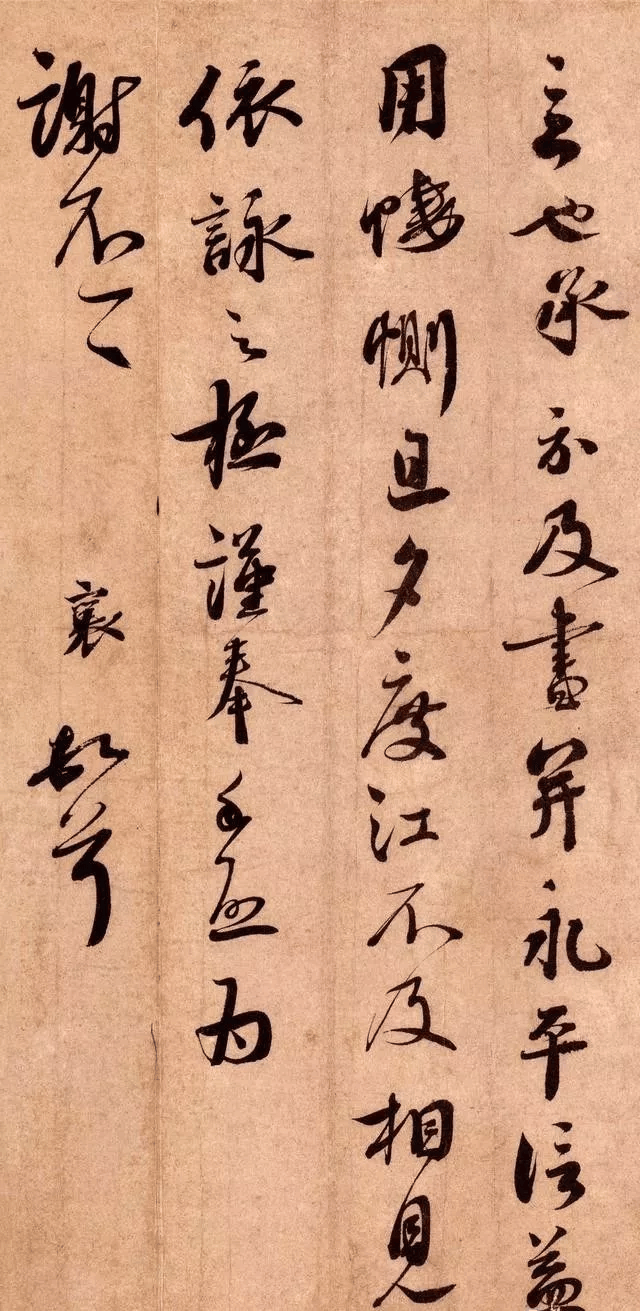 言也承示及書并永平信益
用悽惻旦夕度江不及相見
依詠之極謹奉手啟為
謝不一一 襄頓首